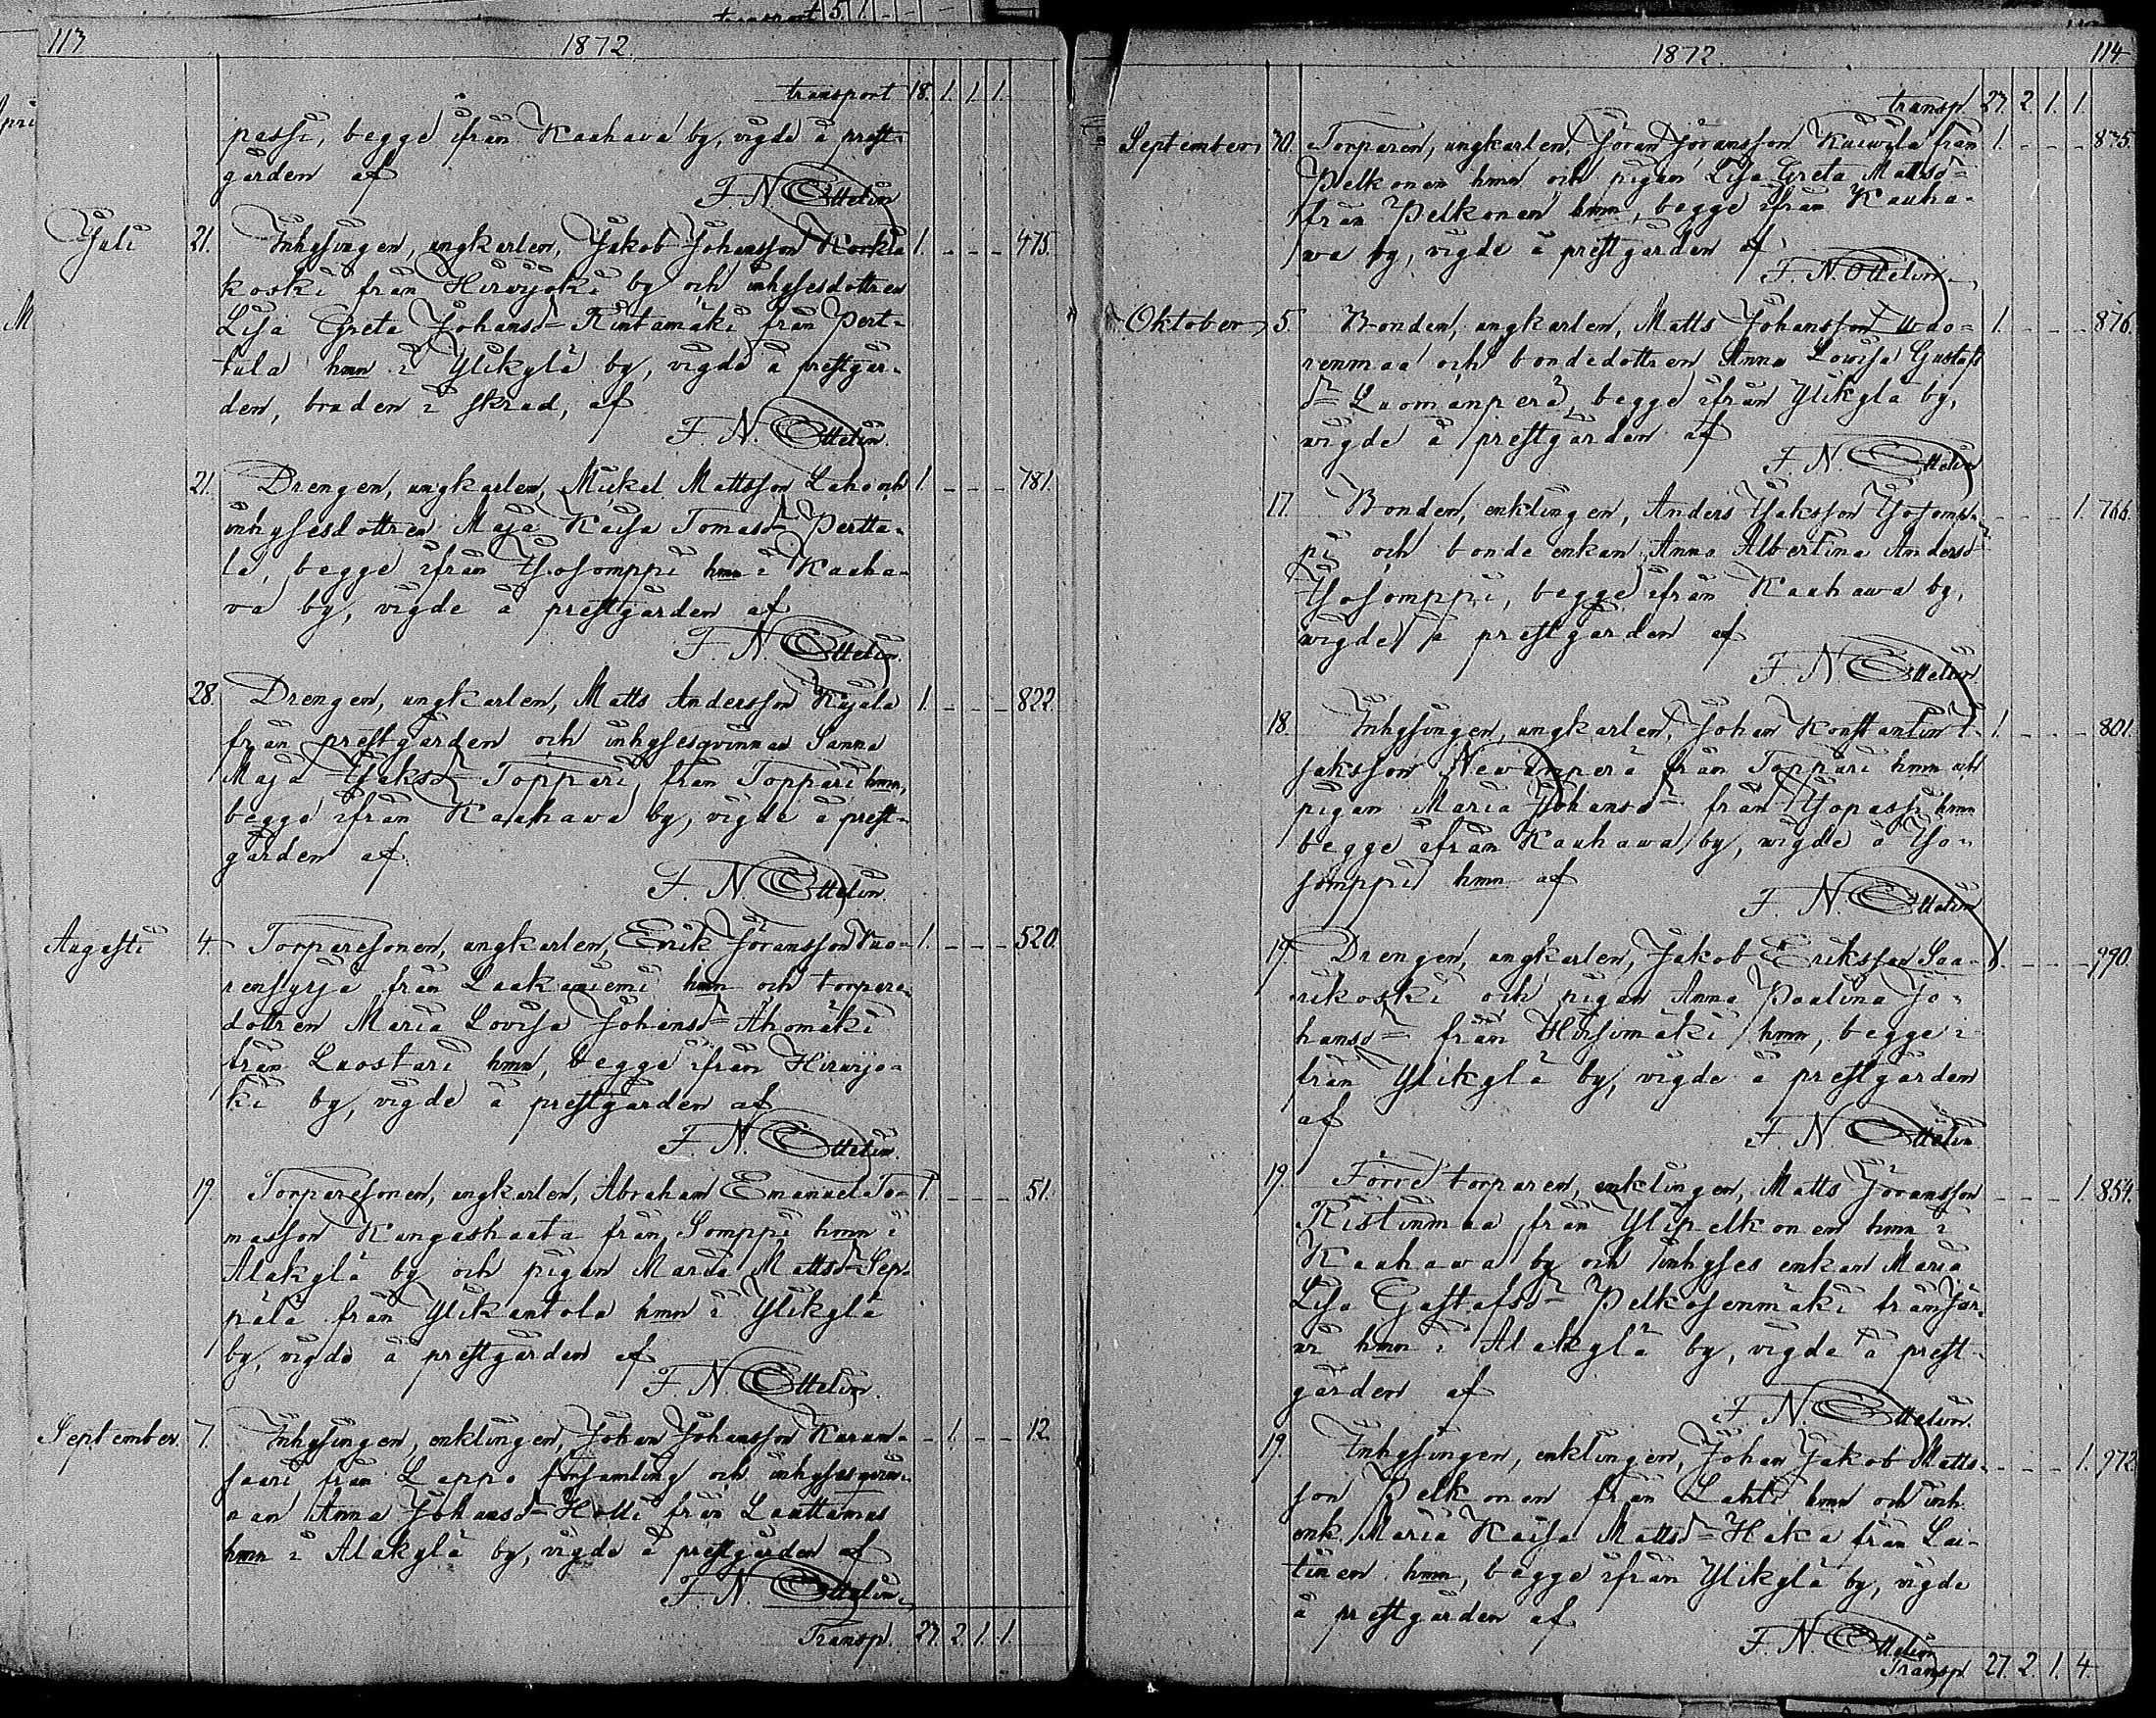 113 1872
transport 18. 1. 1. 1.
passi, begge ifrån Kauhava by, vigde å prest-
gården af
F. N. Ottelin
Juli 21. Inhysingen, ungkarlen, Jakob Johansson Korkia 1. - - - 475.
koski från Hirvijoki by och inhysesdottren
Lisa Greta Johansd Rintamäki från Pert-
tula hmn i Ylikylä by, vigde å prestgår-
den, bruden i skrud, af
F. N. Ottelin.
21. Drengen, ungkarlen, Mickel Mattsson Laho och 1. - - - 781.
inhysesdottren Maja Kaisa Tomasd Pertta-
la, begge ifrån Isosomppi hmn i Kauha-
va by, vigde å prestgården af
F. N. Ottelin.
28. Drengen, ungkarlen, Matts Andersson Kujala 1. - - - 822.
från prestgården och inhysesqvinnan Sanna
Maja Isaksd Toppari, från Toppari hmn,
begge ifrån Kauhawa by, vigde å prest-
gården af
F. N. Ottelin.
Augusti 4. Torparesonen, ungkarlen, Erik Jöransson Vuo- 1. - - - 520.
rensyrjä från Laakaniemi hmn och torpare-
dottren Maria Lovisa Johansd Ahomäki
från Luostari hmn, begge ifrån Hirvijo-
ki by, vigde å prestgården af
F. N. Ottelin.
19. Torparesonen, ungkarlen, Abraham Emanuel To- 1. - - - 51.
masson Kangashaata från Somppi hmn i
Alakylä by och pigan Maria Mattsd Sep-
pälä från Ylikantola hmn i Ylikylä
by, vigde å prestgården af
F. N. Ottelin.
September. 7. Inhysingen, enklingen, Johan Johansson Karan- - 1. - - 12.
saari från Lappo församling och inhysesqvin-
nan Anna Johansd Holli från Lauttamus
hmn i Alakylä by, vigde å prestgården af
F. N. Ottelin.
Transp. 27. 2. 1. 1.
1872. 114.
transp. 27. 2. 1. 1.
September 30. Torparen, ungkarlen, Jöran Jöransson från 1. - - - 875.
Pelkonen hmn och pigan Lisa Greta Mattsd
från Pelkonen hmn, begge ifrån Kauha-
wa by, vigde å prestgården af
F. N. Ottelin.
Oktober 5. Bonden, ungkarlen, Matts Johansson Wuo- 1. - - - 876.
renmaa och bondedottren Anna Lovisa Gustafs
d Luomanperä, begge ifrån Ylikylä by,
wigde å prestgården af
F. N. Ottelin
17. Bonden, enklingen, Anders Isaksson Isosomp- - - - 1. 766.
pi och bonde enkan Anna Albertina Andersd
Isosomppi, begge ifrån Kauhawa by,
wigde å prestgården af
F. N. Ottelin.
18. Inhysingen, ungkarlen, Johan Konstantin I- 1. - - - 801.
saksson Newanperä från Toppari hmn och
pigan Maria Johansd från Isopassi hmn
begge ifrån Kauhawa by, wigde å Iso-
somppi hmn af
F. N. Ottelin
19. Drengen, ungkarlen, Jakob Eriksson Saa- 1. - - - 990.
rikoski och pigan Anna Paalina Jo-
hansd från Hirsimäki hmn, begge i-
från Ylikylä by, vigde å prestgården
af
F. N. Ottelin
19. Förre torparen, enklingen, Matts Jöransson - - - 1. 854.
Ristinmaa från Ylipelkonen hmn i
Kauhawa by och inhyses enkan Maria
Lisa Gustafsd Pelkosenmäki från Jär-
vi hmn i Alakylä by, vigde å prest-
gården af
F. N. Ottelin.
19. Inhysingen, enklingen, Johan Jakob Matts- - - - 1. 972.
son Pelkonen från Lahti hmn och inh.
enk. Maria Kaisa Mattsd Haka från Lai-
tinen hmn, begge ifrån Ylikylä by, vigde
å prestgården af
F. N. Ottelin
Transp. 27. 2. 1. 4.